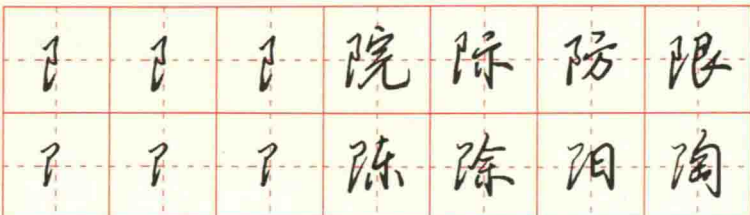 阝阝阝院际防限
阝阝阝陈除阳陶